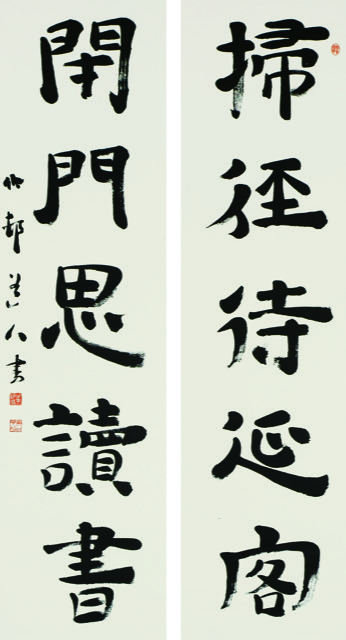 掃徑待延客
閉門思讀書
仙都人書